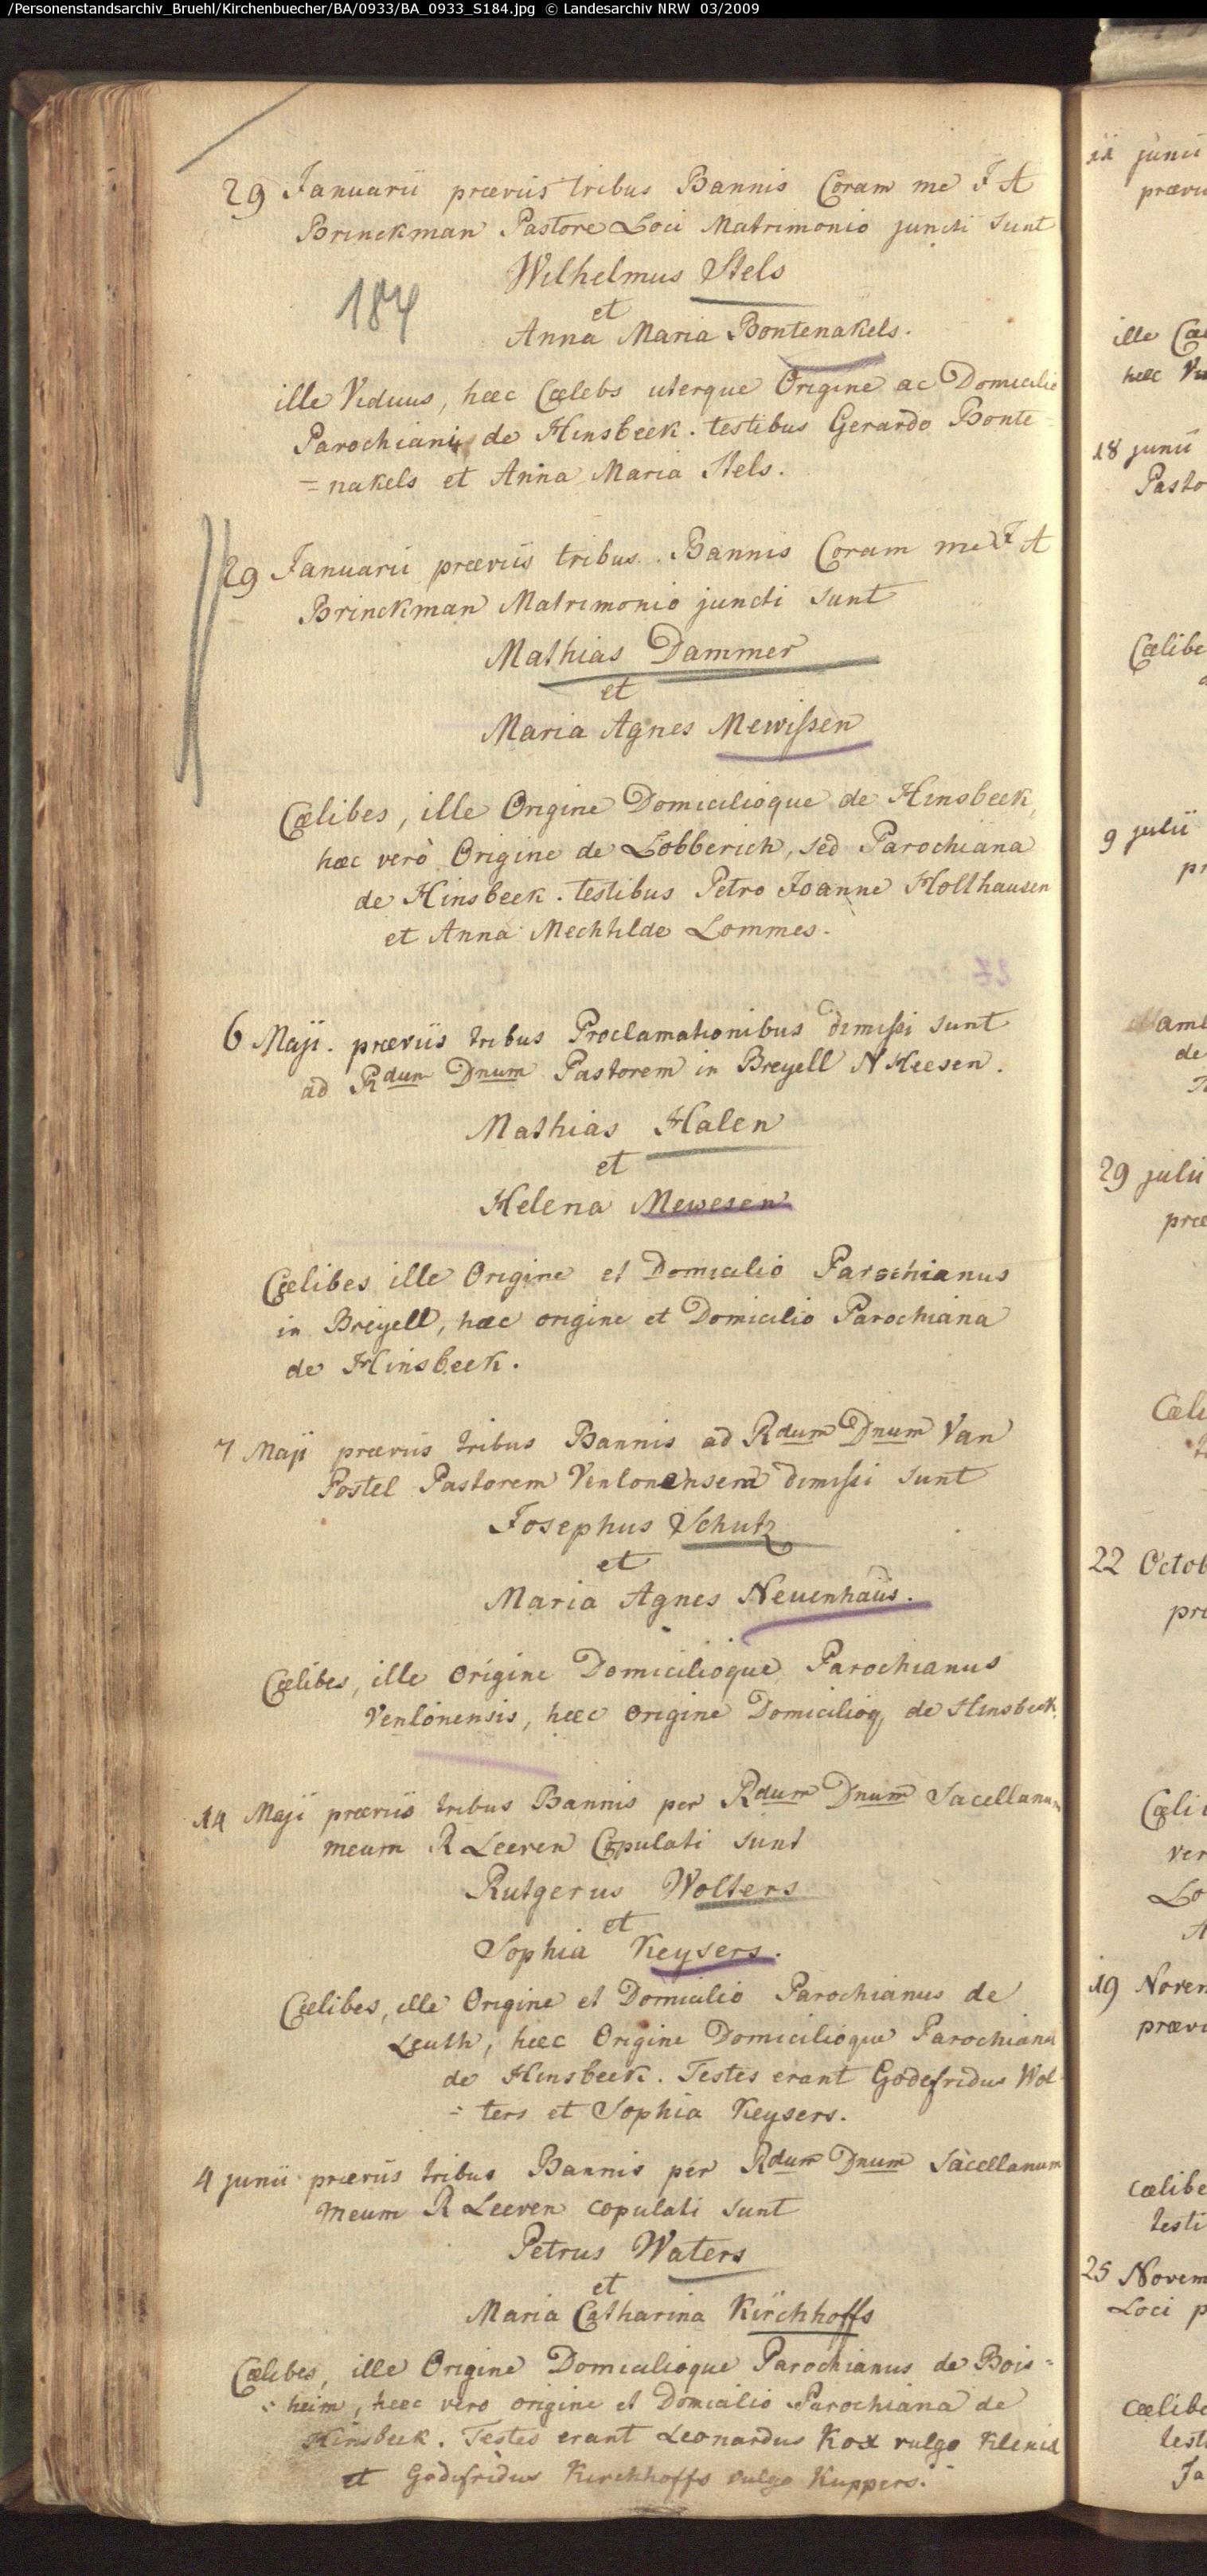 /Personenstandsarchiv_Bruehl/Kirchenbuecher/BA/0933/BA_0933_S184.jpg © Landesarchiv NRW 03/2009
29 Januarii præviis tribus Bannis Coram me F A
Brinckman Pastore Loci Matrimonio juncti sunt
Wilhelmus Stels
184
et
Anna Maria Bontenakels.
ille Viduus, hæc Cælebs uterque Origine ac Domicilio
Parochianis de Hinsbeek. testibus Gerardo Bonte
=nakels et Anna Maria Stels.
29 Januarii præviis tribus Bannis Coram me F A
Brinckman Matrimonio juncti sunt
Mathias Dammer
et
Maria Agnes Mewissen
Cælibes, ille Origine Domicilioque de Hinsbeek,
hæc verò Origine de Lobberich, sed Parochiana
de Hinsbeek. testibus Petro Joanne Holthausen
et Anna Mechtilde Lommes.
6 Maji. præviis tribus Proclamationibus dimissi sunt
ad Rdum Dnum Pastorem in Breyell N Heesen.
Mathias Halen
et
Helena Mewesen
Cælibes ille Origine et Domicilio Parochianus
in Breyell, hæc origine et Domicilio Parochiana
de Hinsbeek.
7 Maji præviis tribus Bannis ad Rdum Dnum Van
Postel Pastorem Venlonensem dimissi sunt
Josephus Schutz
et
Maria Agnes Neuenhaüs.
Cælibes, ille Origine Domicilioque Parochianus
Venlonensis, hæc Origine Domicilioq de Hinsbeek.
14 Maji præviis tribus Bannis per Rdum Dnum Sacellanum
meum R Leeven Copulati sunt
Rutgerus Wolters
et
Sophia Keysers.
Cælibes, ille Origine et Domicilio Parochianus de
Leuth, hæc Origine Domicilioque Parochiana
de Hinsbeek. Testes erant Godefridus Wol
=ters et Sophia Keysers.
4 junii præviis tribus Bannis per Rdum Dnum Sacellanum
meum R Leeven copulati sunt
Petrus Waters
et
Maria Catharina Kirchhoffs
Cælibes, ille Origine Domicilioque Parochianus de Bois=
=heim, hæc vero origine et Domicilio Parochiana de
Hinsbeek. Testes erant Leonardus Kox vulgo
et Godefridus Kirchhoffs vulgo Kuppers.
11 junii
præv
ille Cæ
hæc
18 junii
Pasto
Cælibe
9 julii
pr
de
29 julii
præ
Cæli
22 Octob
pre
Cæli
ver
Lo
19 Novem
prævi
cælibe
testi
25 Novem
Loci p
Cælibe
test
Ja